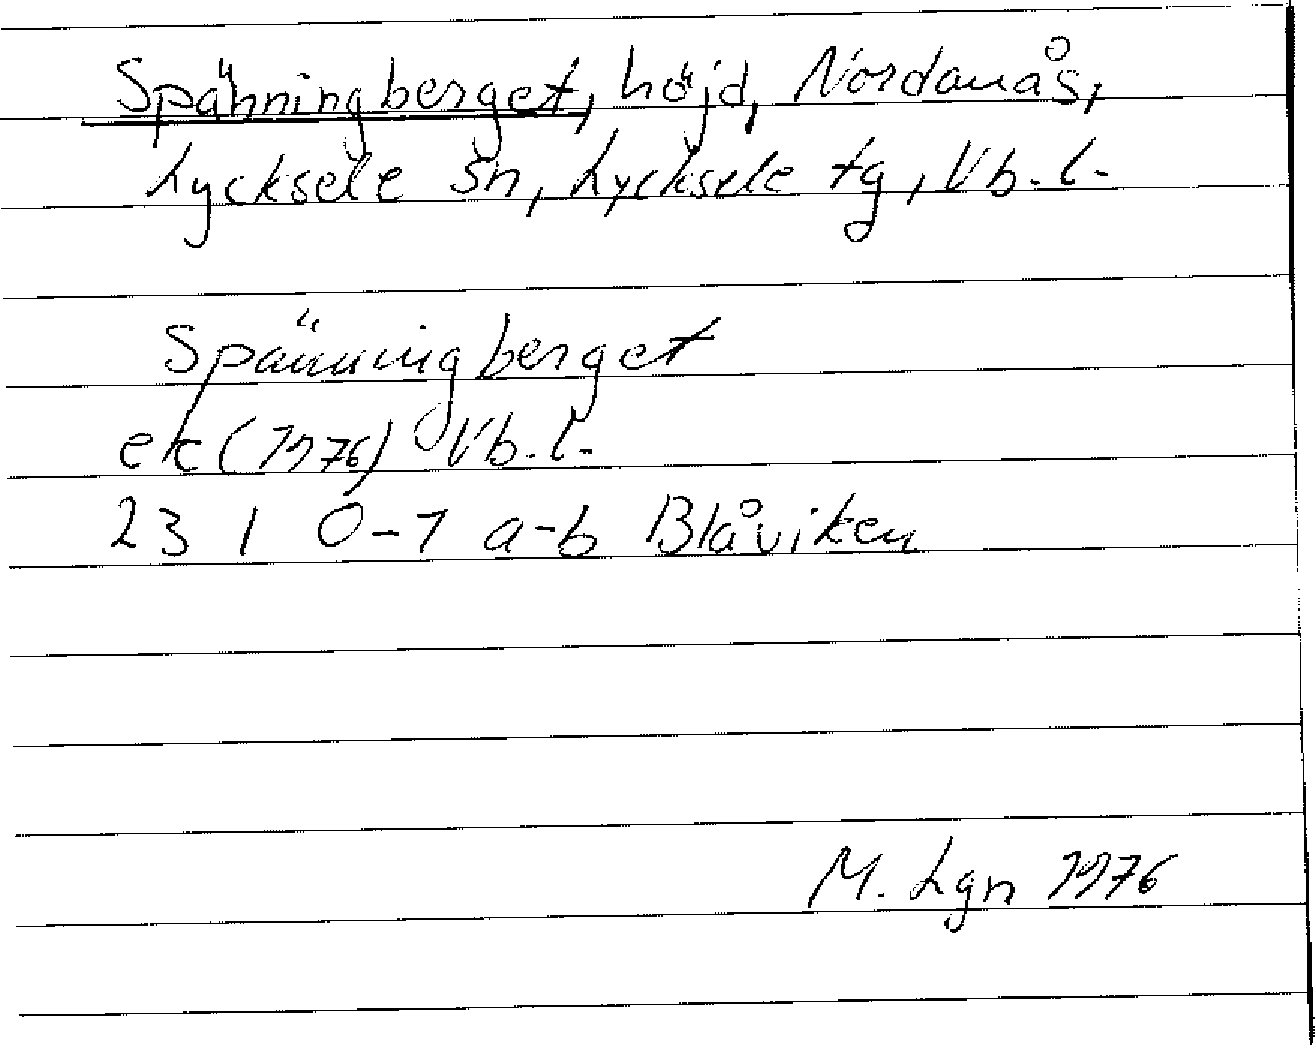 Spänningberget, höjd, Nordanås,
Lycksele sn, Lycksele tg, Vb. l.
Spänningberget
ek (1976) Vb. l.
23 I 0-1 a-b Blåviken
M. Lgn 1976